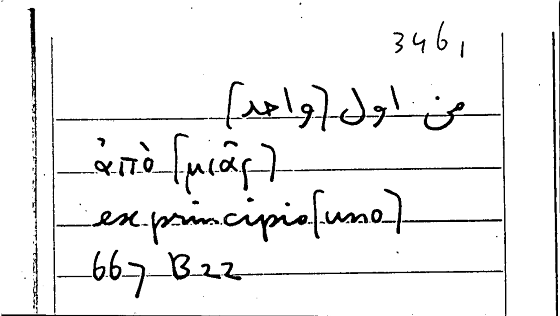 346,
من اول [واحد]
ἀπὸ [μιᾶς]
ex principio [uno]
667 B22